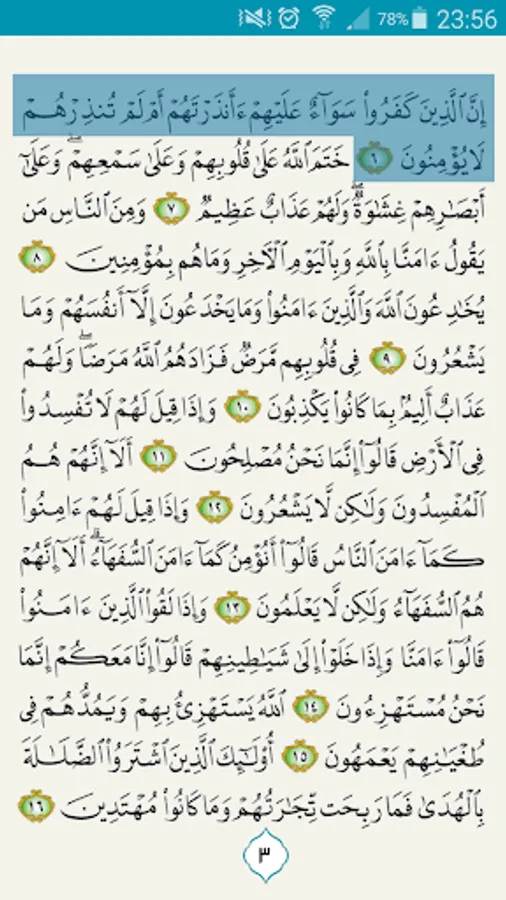 78% 23:56
إِنَّ ٱلَّذِينَ كَفَرُوا۟ سَوَآءٌ عَلَيْهِمْ ءَأَنذَرْتَهُمْ أَمْ لَمْ تُنذِرْهُمْ
لَا يُؤْمِنُونَ ٦ خَتَمَ ٱللَّهُ عَلَىٰ قُلُوبِهِمْ وَعَلَىٰ سَمْعِهِمْ ۖ وَعَلَىٰٓ
أَبْصَٰرِهِمْ غِشَٰوَةٌ ۖ وَلَهُمْ عَذَابٌ عَظِيمٌ ٧ وَمِنَ ٱلنَّاسِ مَن
يَقُولُ ءَامَنَّا بِٱللَّهِ وَبِٱلْيَوْمِ ٱلْءَاخِرِ وَمَا هُم بِمُؤْمِنِينَ ٨
يُخَٰدِعُونَ ٱللَّهَ وَٱلَّذِينَ ءَامَنُوا۟ وَمَا يَخْدَعُونَ إِلَّآ أَنفُسَهُمْ وَمَا
يَشْعُرُونَ ٩ فِى قُلُوبِهِم مَّرَضٌ فَزَادَهُمُ ٱللَّهُ مَرَضًا ۖ وَلَهُمْ
عَذَابٌ أَلِيمٌۢ بِمَا كَانُوا۟ يَكْذِبُونَ ١٠ وَإِذَا قِيلَ لَهُمْ لَا تُفْسِدُوا۟
فِى ٱلْأَرْضِ قَالُوٓا۟ إِنَّمَا نَحْنُ مُصْلِحُونَ ١١ أَلَآ إِنَّهُمْ هُمُ
ٱلْمُفْسِدُونَ وَلَٰكِن لَّا يَشْعُرُونَ ١٢ وَإِذَا قِيلَ لَهُمْ ءَامِنُوا۟
كَمَآ ءَامَنَ ٱلنَّاسُ قَالُوٓا۟ أَنُؤْمِنُ كَمَآ ءَامَنَ ٱلسُّفَهَآءُ ۗ أَلَآ إِنَّهُمْ
هُمُ ٱلسُّفَهَآءُ وَلَٰكِن لَّا يَعْلَمُونَ ١٣ وَإِذَا لَقُوا۟ ٱلَّذِينَ ءَامَنُوا۟
قَالُوٓا۟ ءَامَنَّا وَإِذَا خَلَوْا۟ إِلَىٰ شَيَٰطِينِهِمْ قَالُوٓا۟ إِنَّا مَعَكُمْ إِنَّمَا
نَحْنُ مُسْتَهْزِءُونَ ١٤ ٱللَّهُ يَسْتَهْزِئُ بِهِمْ وَيَمُدُّهُمْ فِى
طُغْيَٰنِهِمْ يَعْمَهُونَ ١٥ أُو۟لَٰٓئِكَ ٱلَّذِينَ ٱشْتَرَوُا۟ ٱلضَّلَٰلَةَ
بِٱلْهُدَىٰ فَمَا رَبِحَت تِّجَٰرَتُهُمْ وَمَا كَانُوا۟ مُهْتَدِينَ ١٦
٣